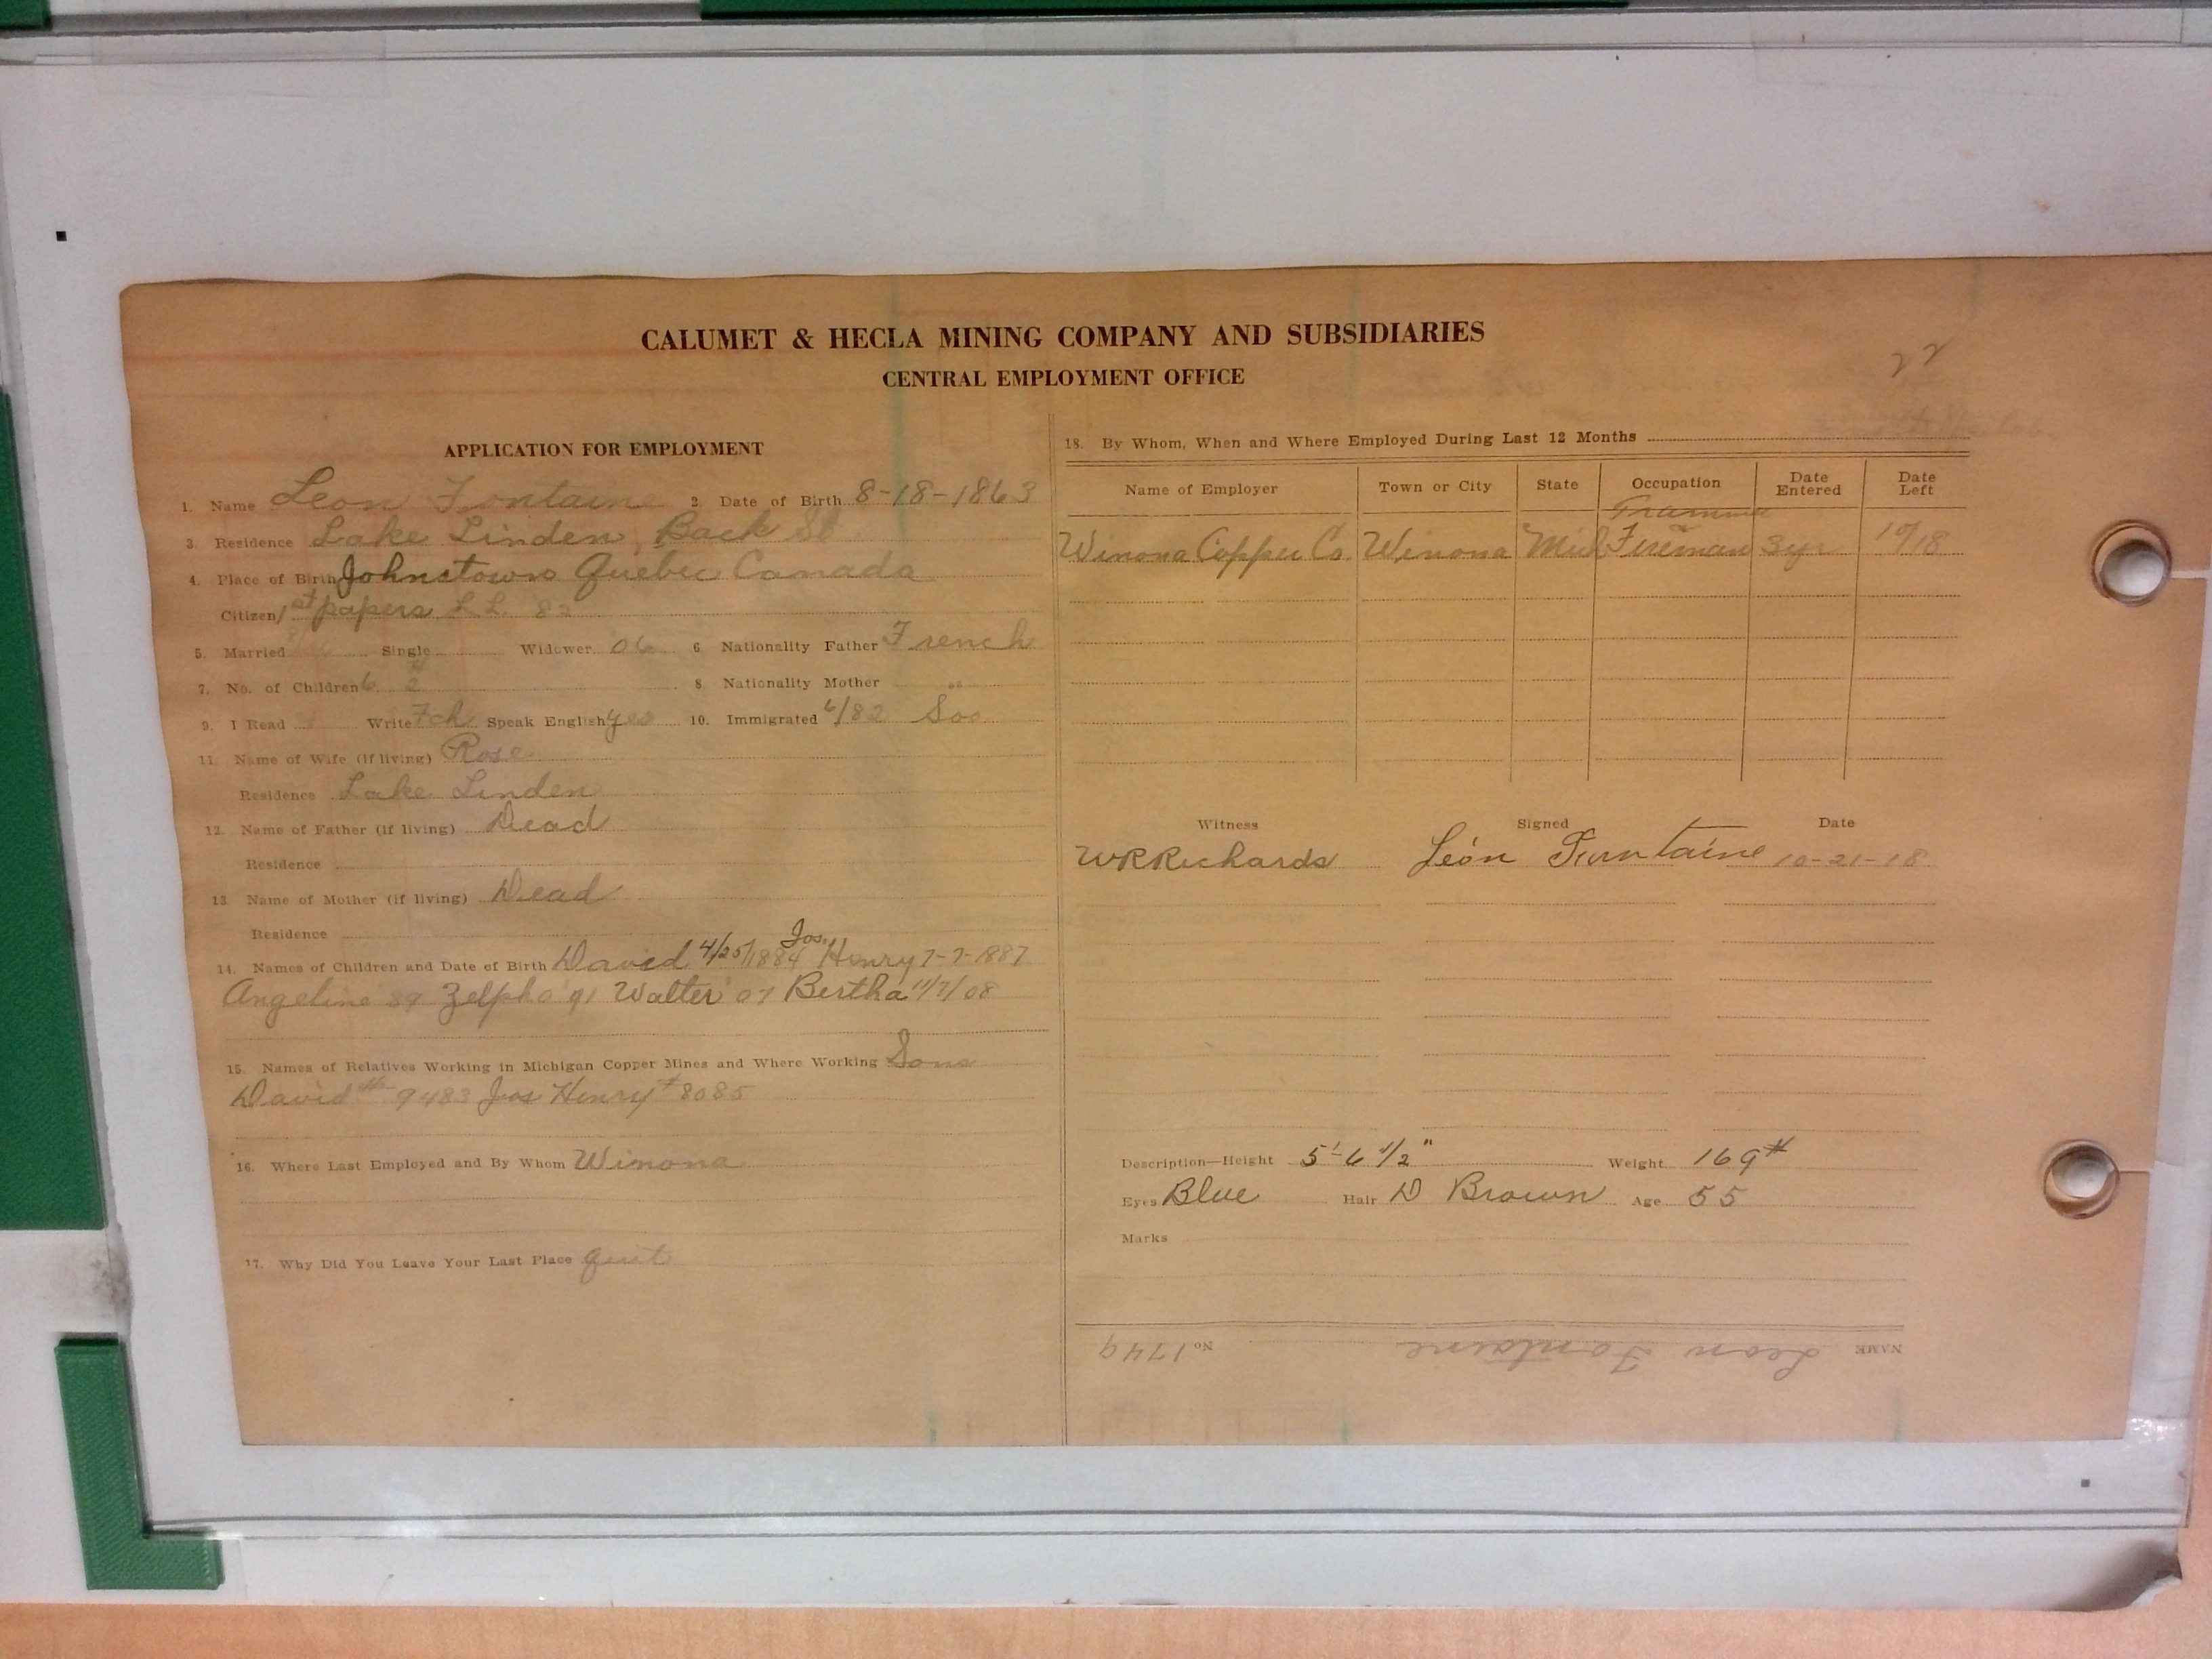 CALUMET & HECLA MINING COMPANY AND SUBSIDIARIES
CENTRAL EMPLOYMENT OFFICE
22
APPLICATION FOR EMPLOYMENT
1. Name Leon Fontaine 2. Date of Birth 8-18-1863
3. Residence Lake Linden, Back St
4. Place of Birth Johnstown Quebec Canada
Citizen 1st papers L L 82
5. Married Single Widower 06 6. Nationality Father French
7. No. of Children 6 8 Nationality Mother "
9. I Read Write Fch Speak English yes 10. Immigrated 6/82 Soo
11. Name of Wife (if living) Rose
Residence Lake Linden
12. Name of Father (if living) Dead
Residence
13 Name of Mother (if living) Dead
Residence
14. Names of Children and Date of Birth David 4/25/1884 Jos. Henry 7-7-1887
Angeline 89 Zelpha 91 Walter 07 Bertha 11/7/08
15. Names of Relatives Working in Michigan Copper Mines and Where Working Sons
David # 9483 Jos Henry # 8085
16. Where Last Employed and By Whom Winona
17. Why Did You Leave Your Last Place Quit
18. By Whom, When and Where Employed During Last 12 Months
Name of Employer Town or City State Occupation Date Entered Date Left
Winona Copper Co. Winona Mich Fireman 3yr 10/18
Witness Signed Date
WRRichards Léon Funtaine 10-21-18
Description—Height 5'-6 1/2" Weight 169#
Eyes Blue Hair D Brown Age 55
Marks
NAME Leon Fontaine No 1749